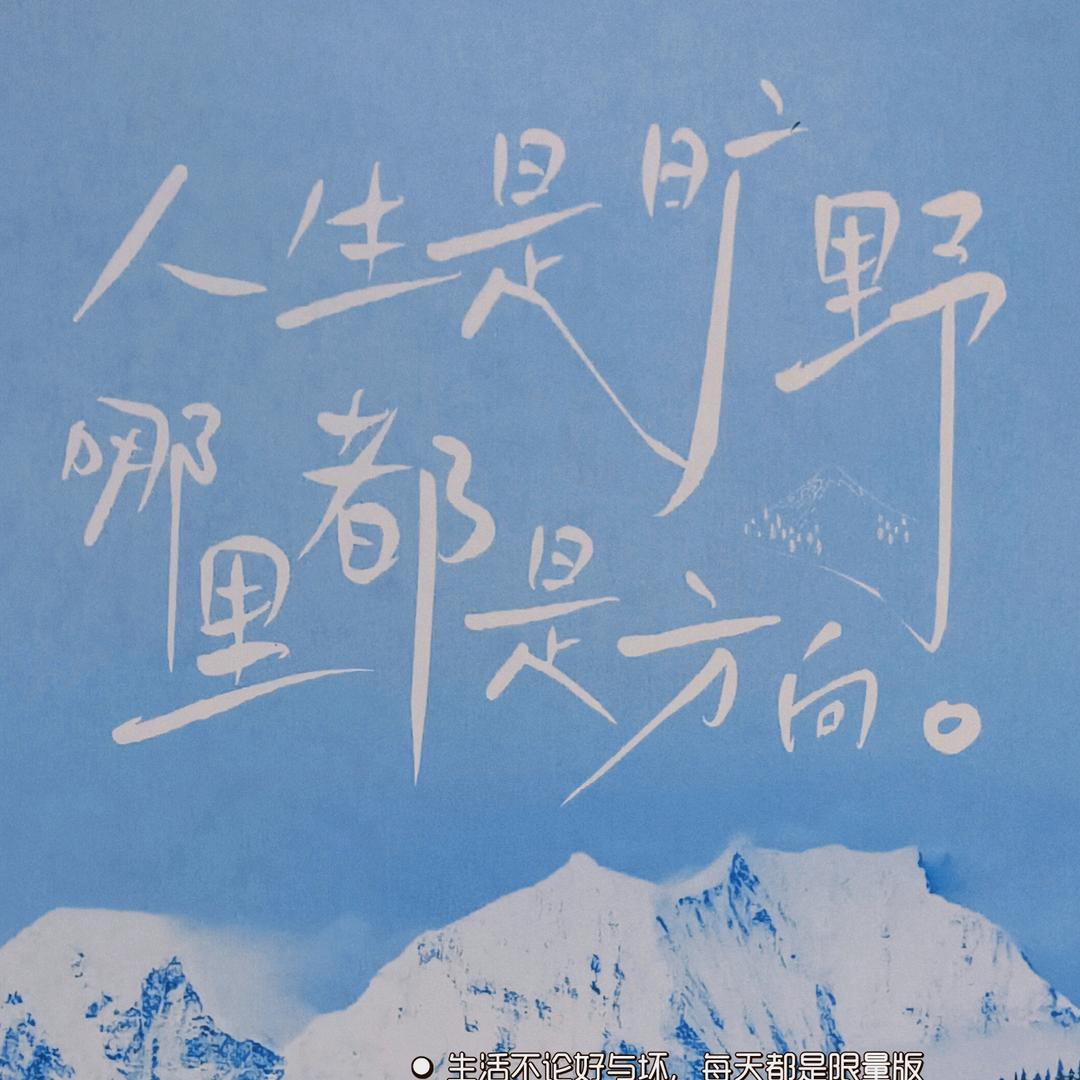 人生是旷野
哪里都是方向。
生活不论好与坏，每天都是限量版